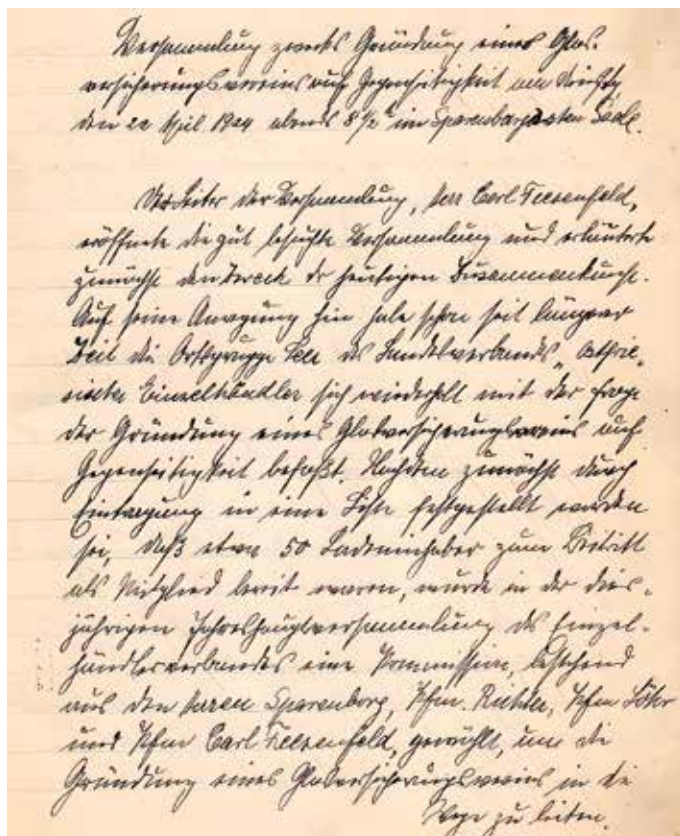 Versammlung zwecks Gründung eines Glas-
versicherungsvereins auf Gegenseitigkeit am Dienstag
den 22 April 1924 abends 8 1/2 h im Sparenborg'schen Saale.
Der Leiter der Versammlung, Herr Carl Feesenfeld,
eröffnete die gut besuchte Versammlung und erläuterte
zunächst den Zweck der heutigen Zusammenkunft.
Auf seine Anregung hin habe schon seit längerer
Zeit die Ortsgruppe Leer des Landesverbandes „Ostfrie-
sischer Einzelhändler sich wiederholt mit der Frage
der Gründung eines Glasversicherungsvereins auf
Gegenseitigkeit befaßt. Nachdem zunächst durch
Eintragung in eine Liste festgestellt worden
sei, daß etwa 50 Ladeninhaber zum Beitritt
als Mitglied bereit waren, wurde in der dies-
jährigen Jahreshauptversammlung des Einzel-
händlerverbandes eine Kommission, bestehend
aus den Herren Sparenborg, Kfm. Richter, Kfm
und Kfm Carl Feesenfeld, gewählt, um die
Gründung eines Glasversicherungsvereins in die
Wege zu leiten.